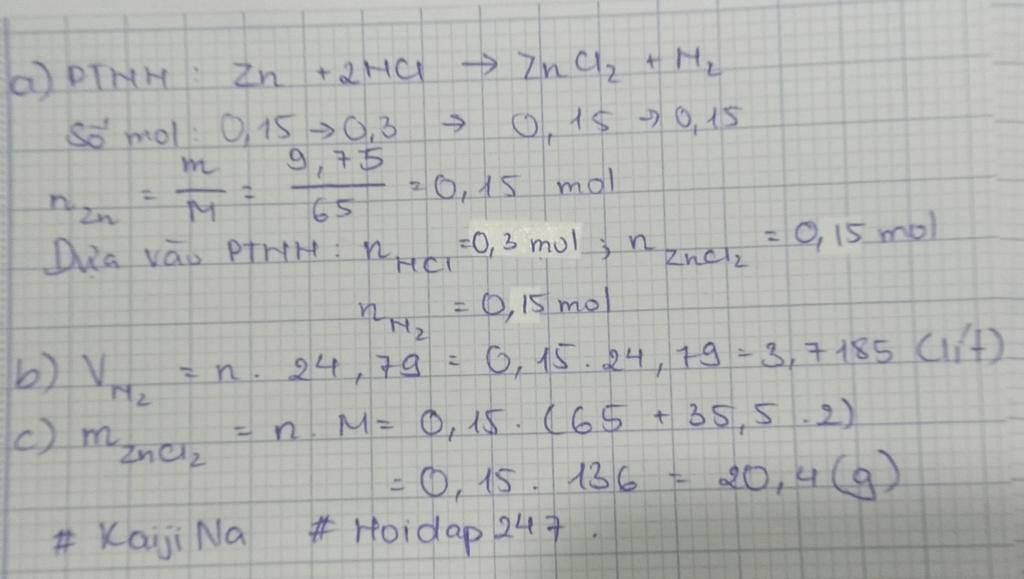 a) PTHH : Zn + 2HCl → ZnCl₂ + H₂
Số mol: 0,15 → 0,3 → 0,15 → 0,15
n_Zn = m/M = 9,75/65 = 0,15 mol
Dựa vào PTHH : n_HCl = 0,3 mol ; n_ZnCl₂ = 0,15 mol
n_H₂ = 0,15 mol
b) V_H₂ = n. 24,79 = 0,15. 24,79 = 3,7185 (lít)
c) m_ZnCl₂ = n. M = 0,15. (65 + 35,5 . 2)
= 0,15. 136 = 20,4 (g)
# KaijiNa # Hoidap247.